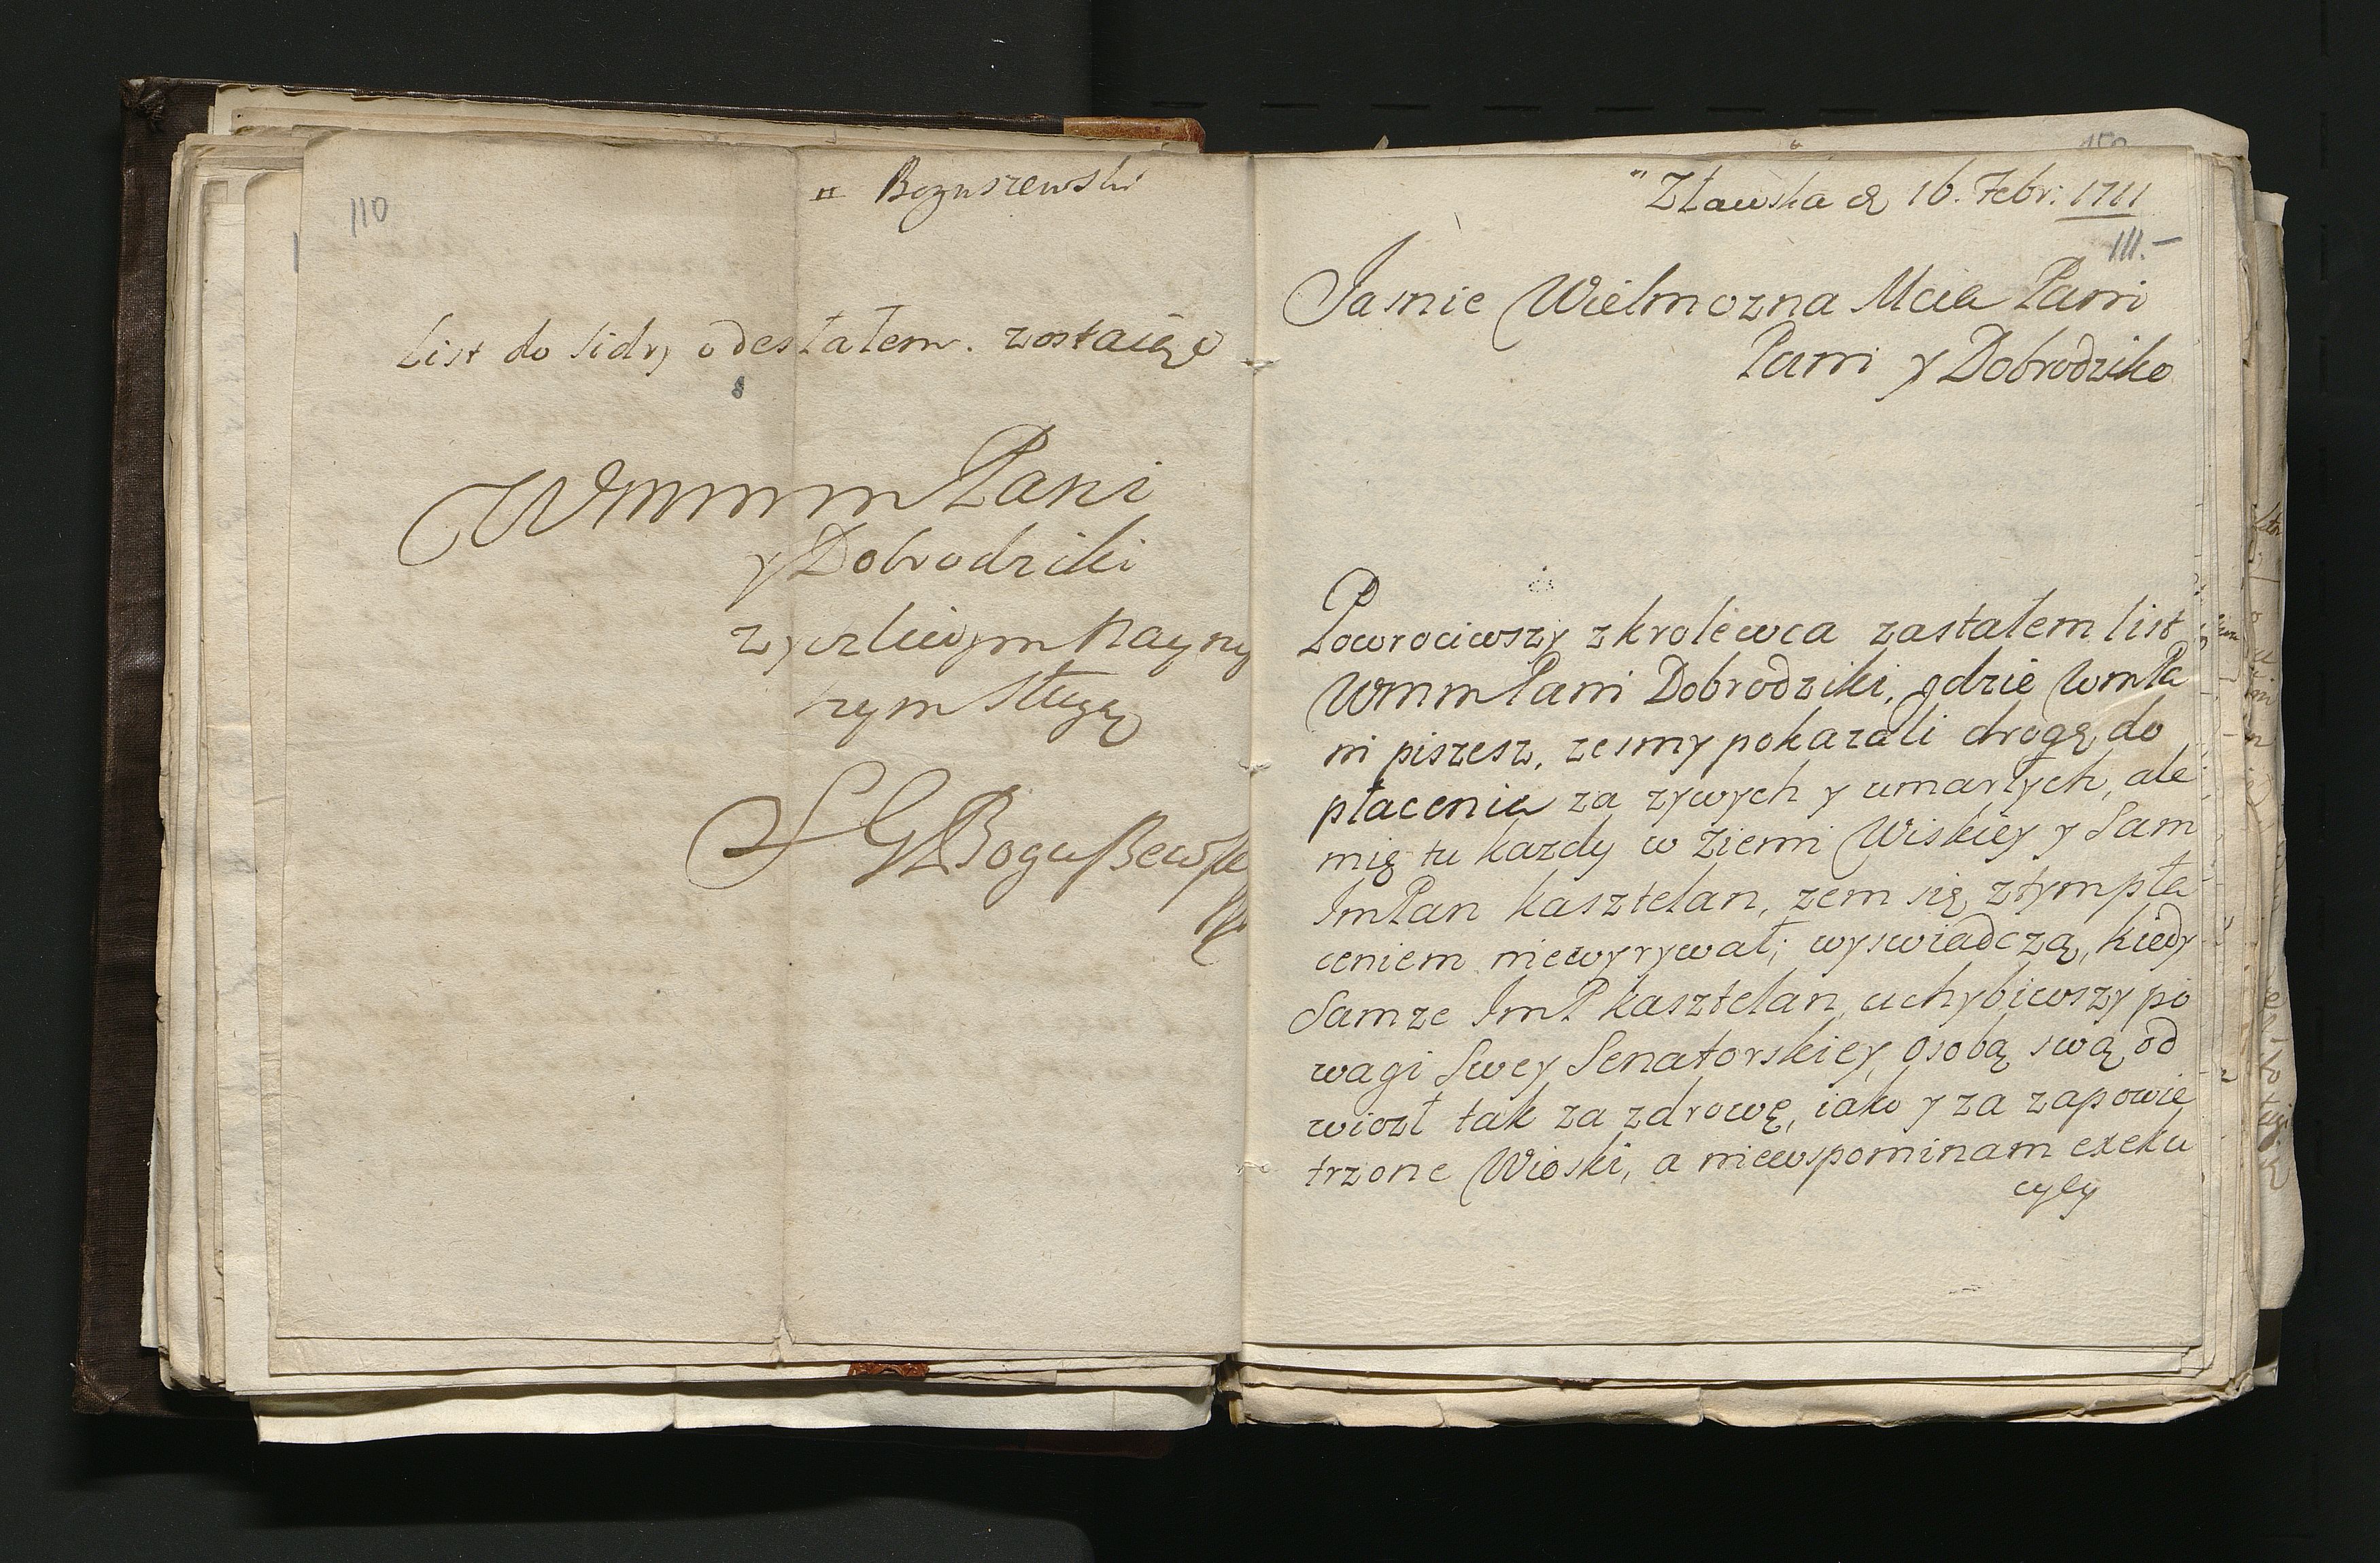 110
" Boguszewski
List do Sidry odesłałem. zostaięc
WmmmPani
y Dobrodziki
zyczliwym nayny
szym sługą
SGBogußewsk
"Zławska d 16. Febr: 1711
111.
Jasnie Wielmozna Mcia Pani
Pani y Dobrodziko
Powrociwszy z krolewca zastałem list
WmmPani Dobrodziki, gdzie WmPa
ni piszesz, zesmy pokazali drogę do
płacenia za zywych y umarłych, ale
mię tu kazdy w ziemi Wiskiey y Sam
ImPan kasztelan, zem się ztym pła
ceniem niewyrywał; wyswiadczą, kiedy
Samze ImP kasztelan uchybiwszy po
wagi Swey Senatorskiey, Osobą swą od
wiozł tak za zdrowę, iako y za zapowie
trzone Wioski, a niewspominam exeku
cyey